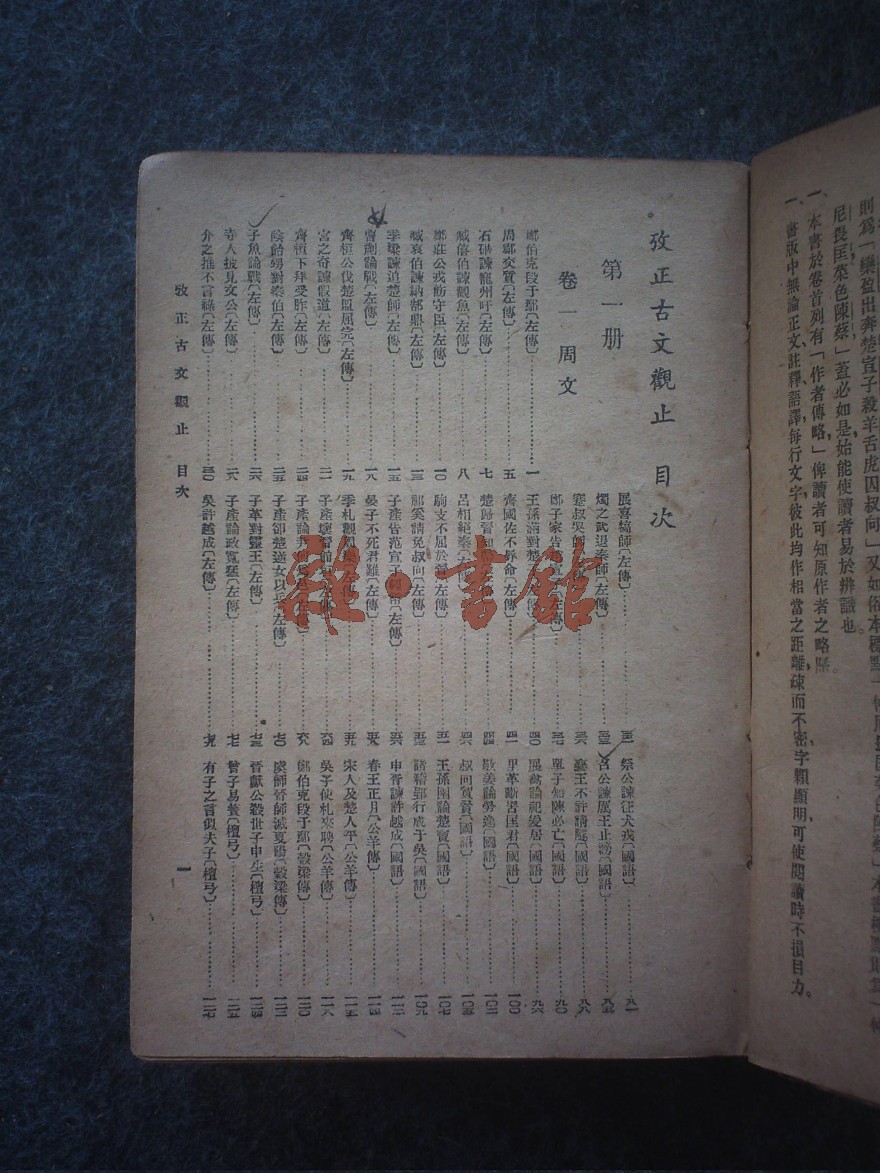 則爲「欒盈出奔楚宣子殺羊舌虎囚叔向」又如俗本標點
尼畏匡菜色陳蔡」蓋必如是始能使讀者易於辨識也。
一、本書於卷首列有「作者傳略」俾讀者可知原作者之略歷。
一、書版中無論正文註釋語譯每行文字彼此均作相當之距離疎而不密字顆顯明可使閱讀時不損目力。
攷正古文觀止 目次
第一册
卷一 周文
鄭伯克段于鄢〔左傳〕 一
周鄭交質〔左傳〕 五
石碏諫寵州吁〔左傳〕 七
臧僖伯諫觀魚〔左傳〕 八
鄭莊公戒飭守臣〔左傳〕 一〇
臧哀伯諫納郜鼎〔左傳〕 一三
季梁諫追楚師〔左傳〕 一五
曹劌論戰〔左傳〕 一八
齊桓公伐楚盟屈完〔左傳〕 一九
宮之奇諫假道〔左傳〕 二一
齊桓下拜受胙〔左傳〕 二四
陰飴甥對秦伯〔左傳〕 二五
子魚論戰〔左傳〕 二六
寺人披見文公〔左傳〕 二八
介之推不言祿〔左傳〕 三〇
展喜犒師〔左傳〕
燭之武退秦師〔左傳〕
蹇叔哭師
鄭子家告 〔左傳〕 三七
王孫滿對楚 四〇
齊國佐不辱命〔左傳〕 四一
楚歸晉知 四四
呂相絕秦〔左傳〕 四六
駒支不屈于晉〔左傳〕 五一
祁奚請免叔向〔左傳〕 五三
子產告范宣子輕幣〔左傳〕
晏子不死君難〔左傳〕
季札觀周樂〔左傳〕 五九
子產壞晉館垣〔左傳〕 六四
子產論尹何爲邑〔左傳〕 六八
子產卻楚逆女以兵〔左傳〕 七〇
子革對靈王〔左傳〕 七三
子產論政寬猛〔左傳〕 七七
吳許越成〔左傳〕 七九
祭公諫征犬戎〔國語〕
召公諫厲王止謗〔國語〕
襄王不許請隧〔國語〕 八八
單子知陳必亡〔國語〕 九〇
展禽論祀爰居〔國語〕 九六
里革斷罟匡君〔國語〕 一〇〇
敬姜論勞逸〔國語〕
叔向賀貧〔國語〕 一〇五
王孫圉論楚寶〔國語〕 一〇七
諸稽郢行成于吳〔國語〕 一〇九
申胥諫許越成〔國語〕
春王正月〔公羊傳〕 一一四
宋人及楚人平〔公羊傳〕
吳子使札來聘〔公羊傳〕
鄭伯克段于鄢〔穀梁傳〕 一二〇
虞師晉師滅夏陽〔穀梁傳〕
晉獻公殺世子申生〔檀弓〕 一二四
曾子易簀〔檀弓〕
有子之言似夫子〔檀弓〕 一二七
攷正古文觀止 目次
一
雜·書館